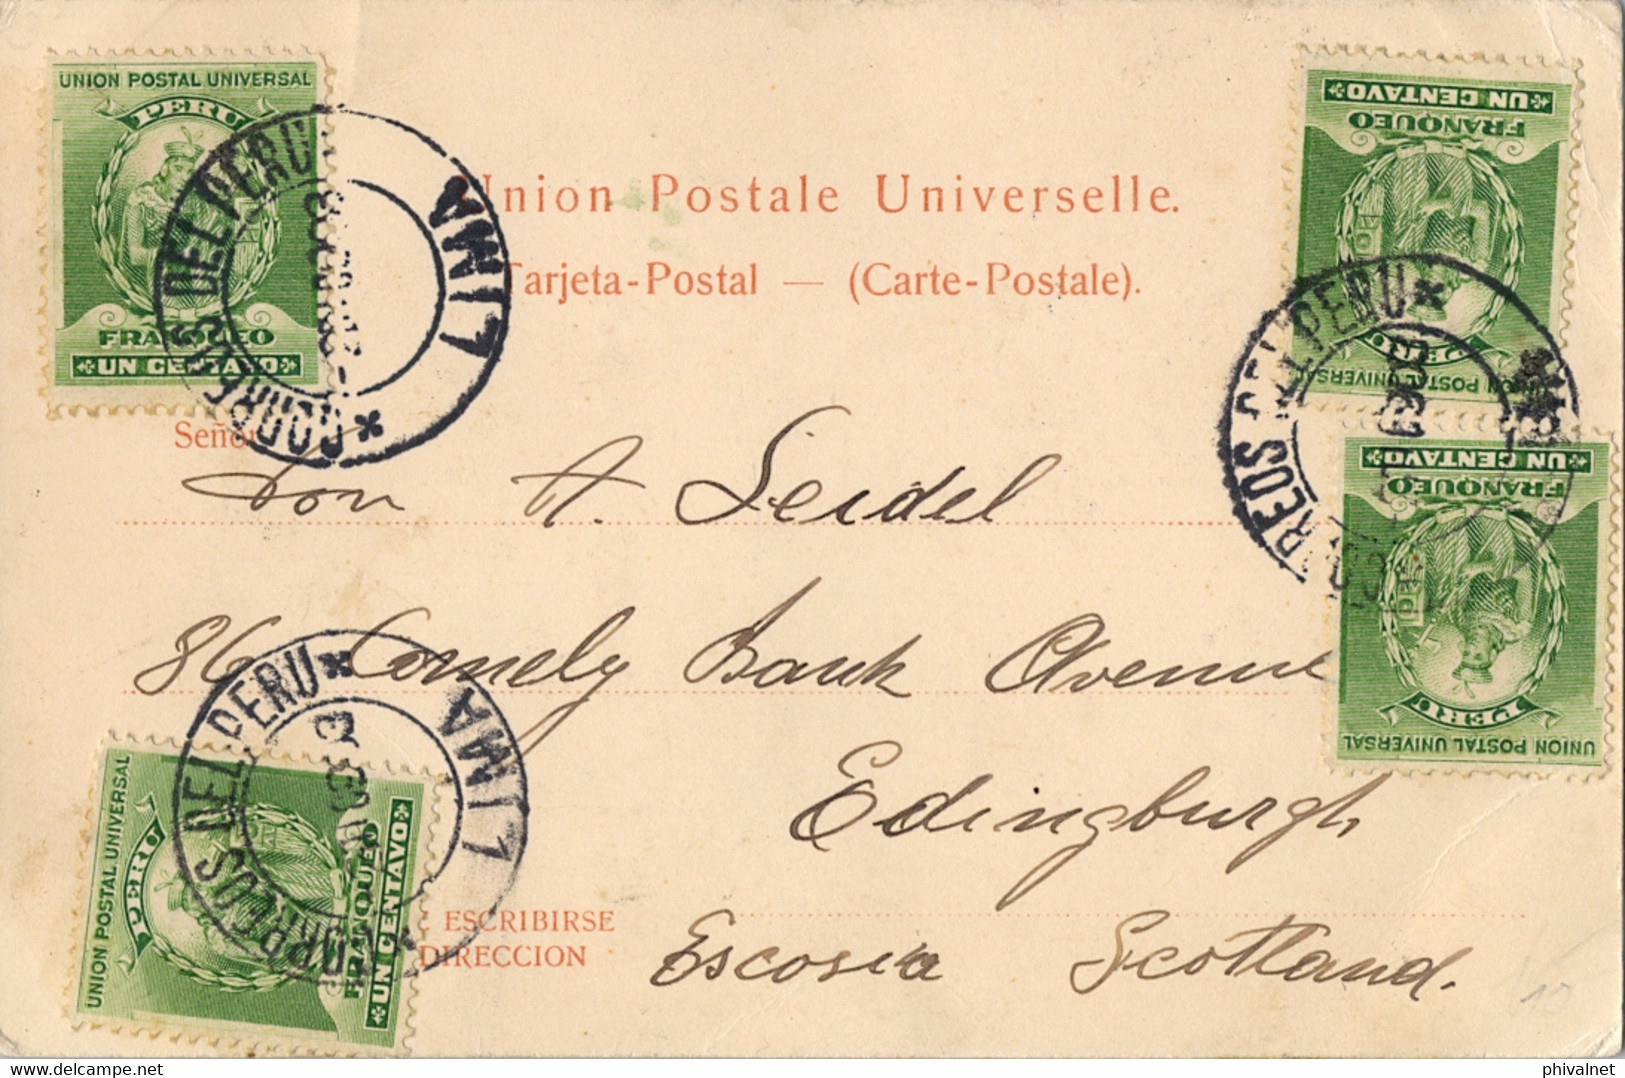 UNION POSTAL UNIVERSAL
PERU
FRANQUEO
UN CENTAVO
CORREOS DEL PERU
LIMA
Union Postale Universelle.
Tarjeta-Postal — (Carte-Postale).
UN CENTAVO
FRANQUEO
PERU
UNION POSTAL UNIVERSAL
CORREOS DEL PERU
UN CENTAVO
FRANQUEO
PERU
UNION POSTAL UNIVERSAL
Señor
Don A. Seidel
86 Comely Bank Avenue
Edingburgh
Escosia Scotland.
CORREOS DEL PERU
LIMA
UNION POSTAL UNIVERSAL
PERU
FRANQUEO
UN CENTAVO
ESCRIBIRSE
DIRECCION
10
My Auction
phivalnet